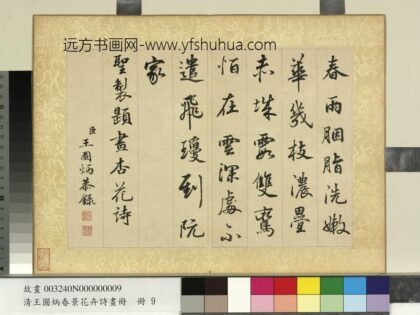 远方书画网-www.yfshuhua.com
春雨胭脂洗嫩
華幾枝濃疊
赤城霞雙鸞
怕在雲深處不
遣飛瓊到阮
家
聖製題畫杏花詩
臣王圖炳恭錄
故畫 003240N000000009
清王圖炳春景花卉詩畫冊 冊 9